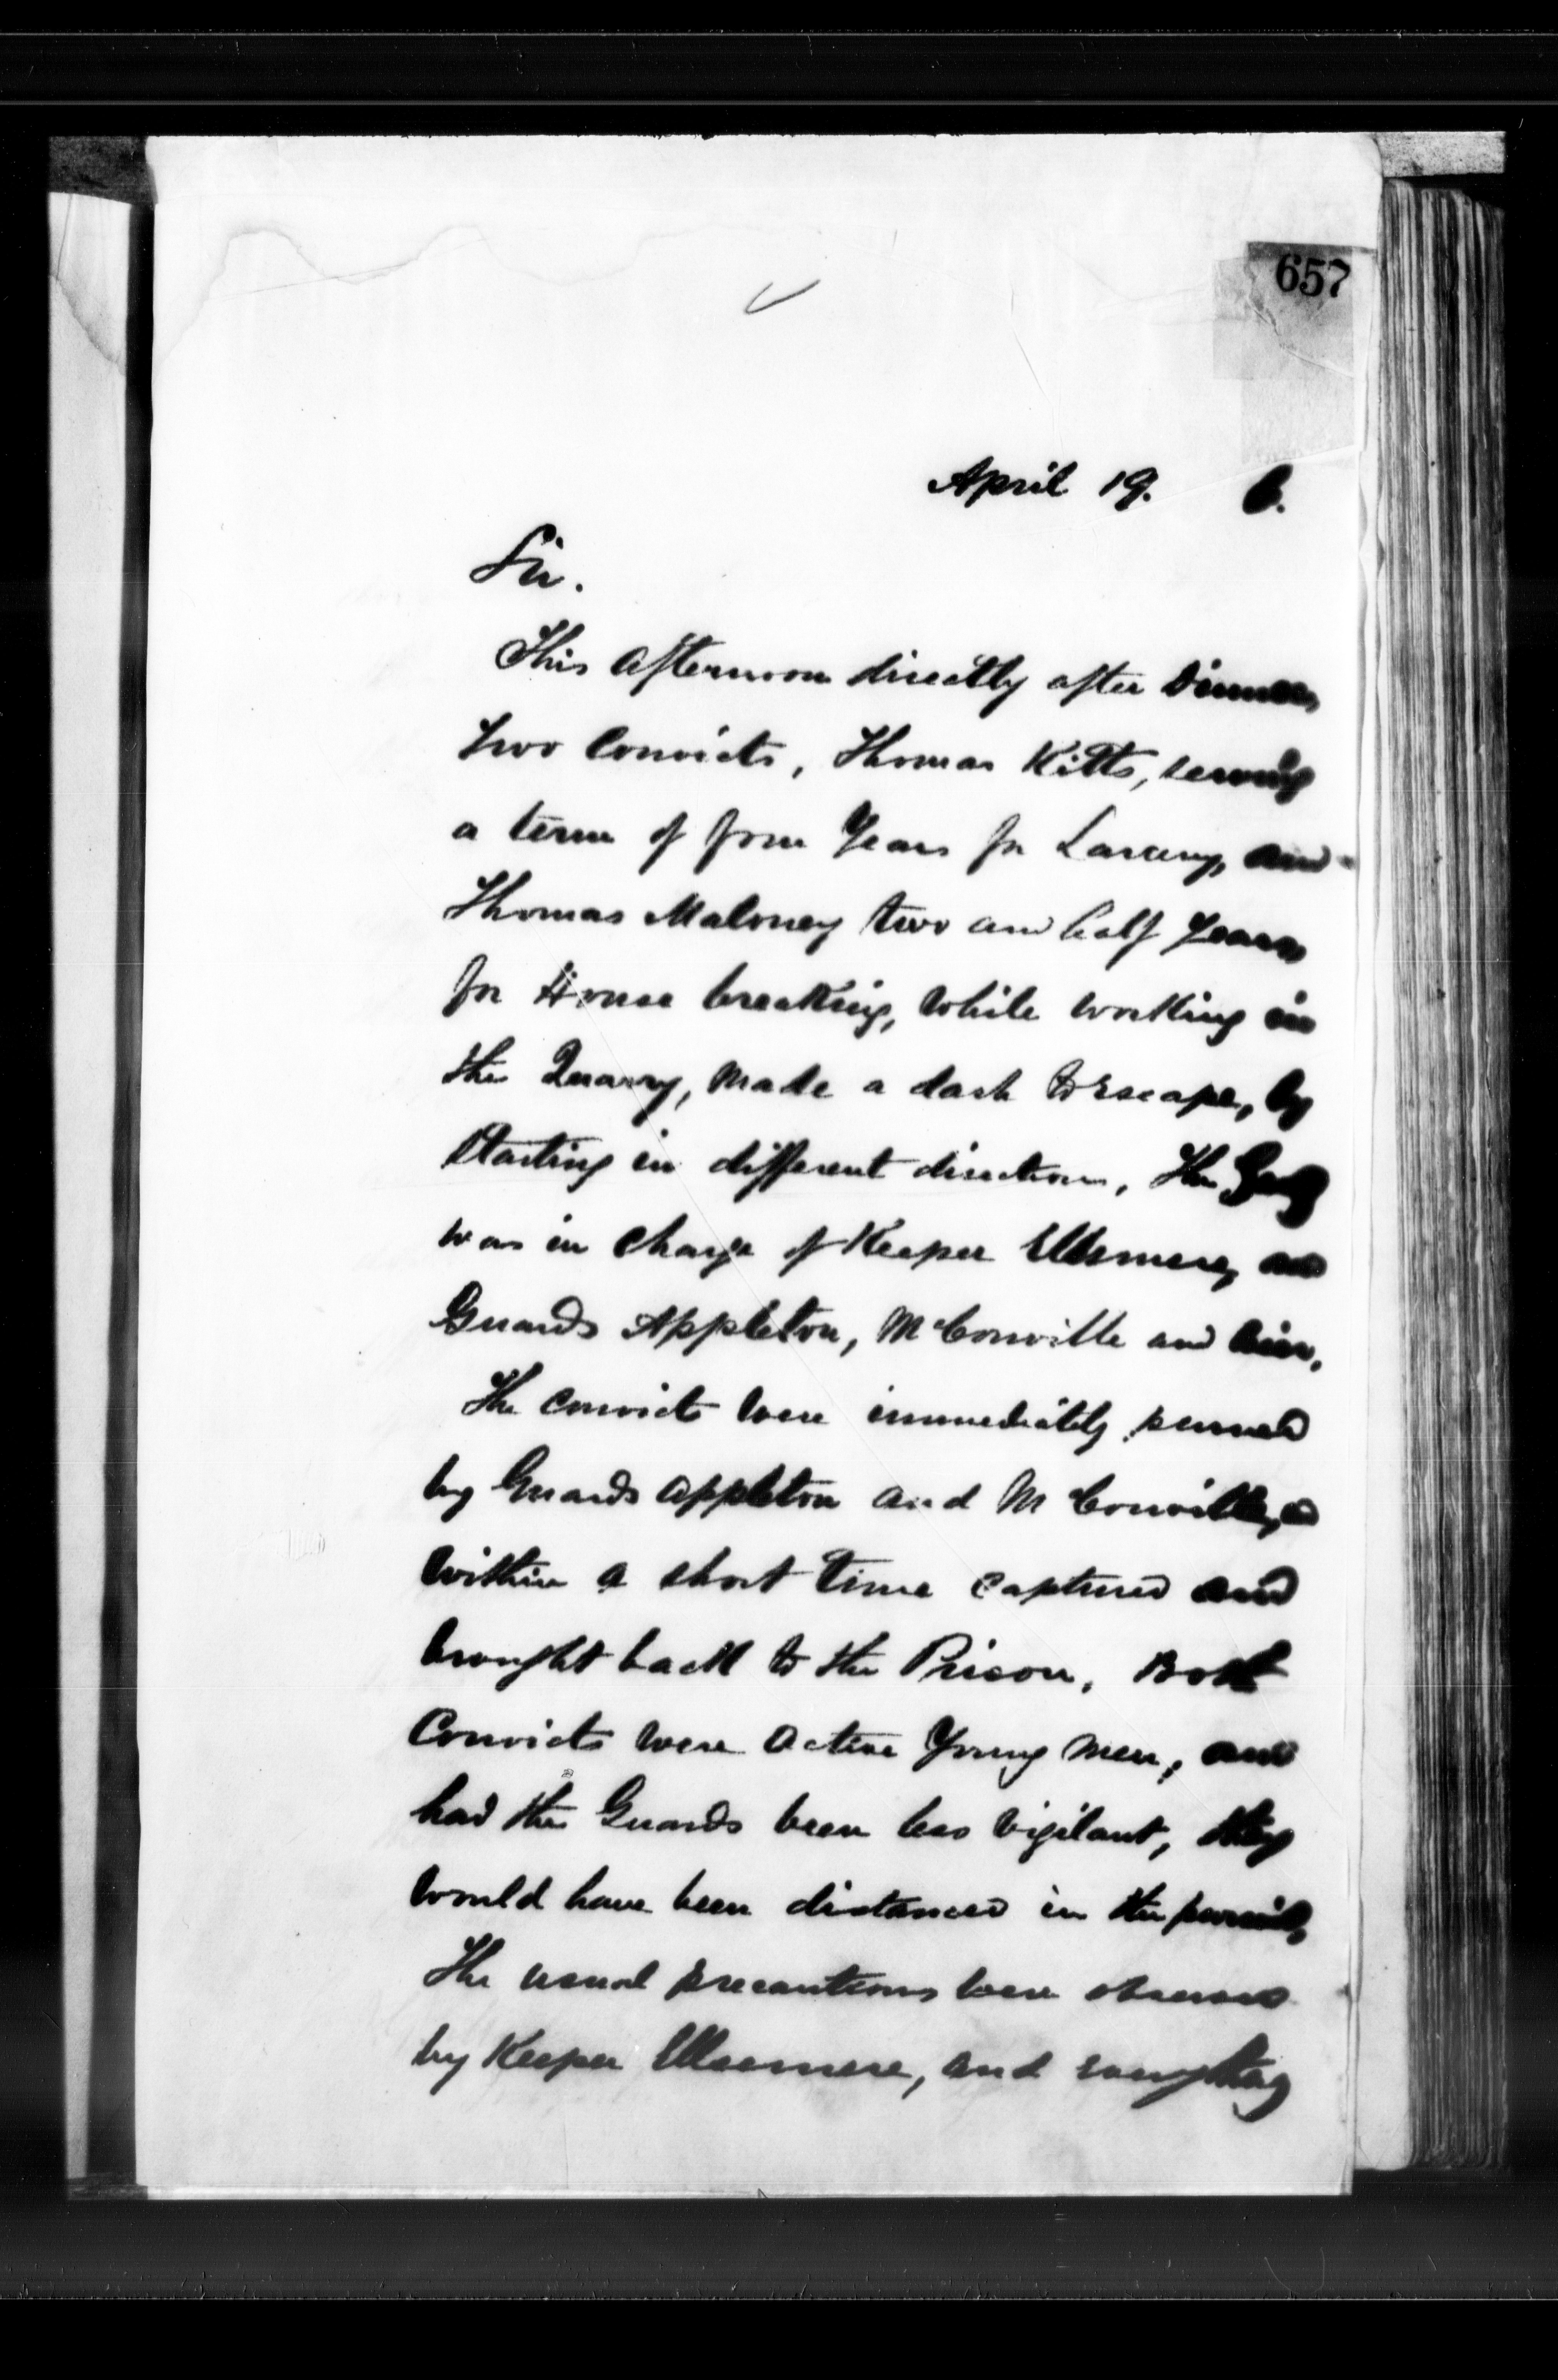 657
April 19. 6.
Sir.
This afternoon directly after Dinner,
two Convicts, Thomas Kitts, serving
a term of four Years for Larceny, and
Thomas Maloney two and half Years
for House breaking, while working in
the Quarry, made a dash to Escape, by
starting in different directions, The Gang
was in charge of Keeper Ellsmere, and
Guards Appleton, McConville and
The convicts were immediately pursued
by Guards Appleton and McConville, &
within a short time captured and
brought back to the Prison. Both
Convicts were active Young Men, and
had the Guards been less vigilant, they
would have been distanced in the pursuit,
The usual precautions were observed
by Keeper Ellesmere, and everything